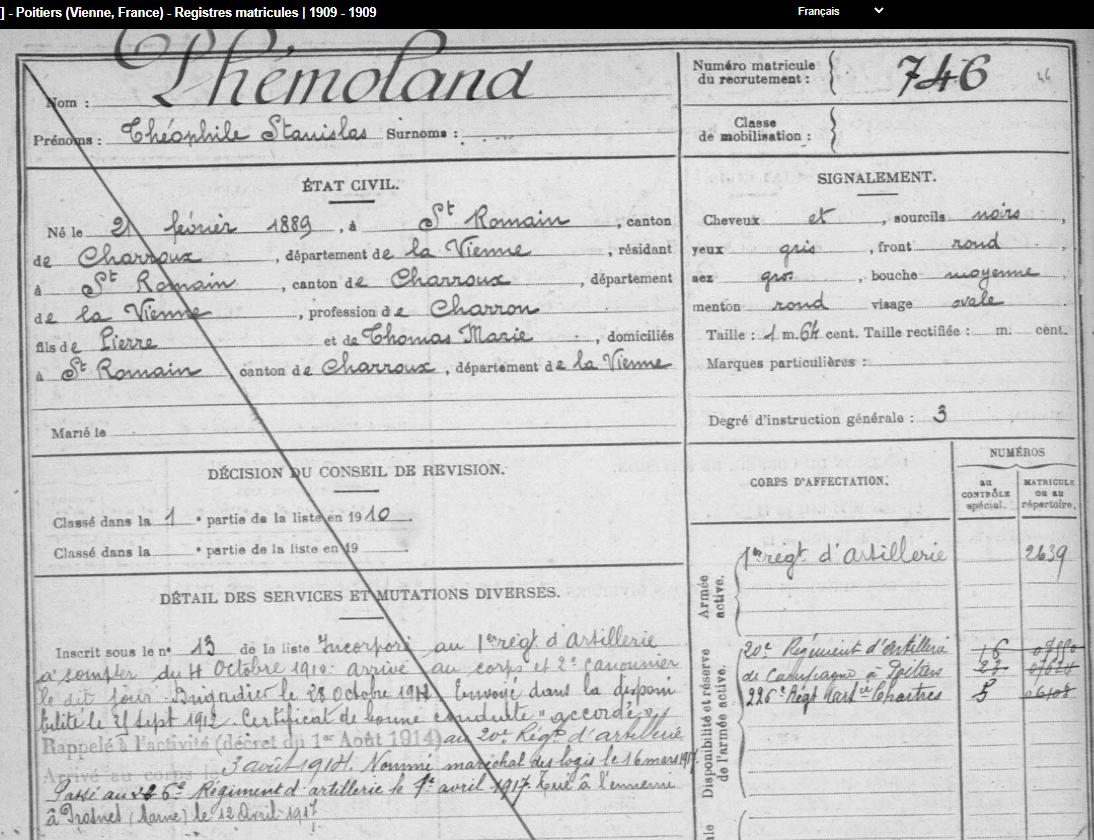 ] - Poitiers (Vienne, France) - Registres matricules | 1909 - 1909
Français
Nom : Phémoland
Prénoms : Théophile Stanislas Surnoms :
Numéro matricule du recrutement : 746
Classe de mobilisation :
ÉTAT CIVIL.
Né le 21 février 1889, à St Romain, canton
de Charroux, département de la Vienne, résidant
à St Romain, canton de Charroux, département
de la Vienne, profession de Charron
fils de Pierre et de Thomas Marie, domiciliés
à St Romain canton de Charroux, département de la Vienne
Marié le
SIGNALEMENT.
Cheveux et, sourcils noirs,
yeux gris, front rond,
nez gros, bouche moyenne
menton rond visage ovale
Taille : 1 m. 64 cent. Taille rectifiée : m. cent.
Marques particulières :
Degré d'instruction générale : 3
DÉCISION DU CONSEIL DE REVISION.
Classé dans la 1e partie de la liste en 1910.
Classé dans la e partie de la liste en 19
DÉTAIL DES SERVICES ET MUTATIONS DIVERSES.
Inscrit sous le n° 13 de la liste Incorporé au 1er régt d'Artillerie
à compter du 4 Octobre 1910. Arrivé au corps et 2e canonnier
le dit jour. Brigadier le 28 Octobre 1911. Envoyé dans la disponi
bilité le Sept 1912. Certificat de bonne conduite "accordé"
Rappelé à l'activité (décret du 1er Août 1914) au 20e Régt d'artillerie
Arrivé au corps le 3 août 1914. Nommé maréchal des logis le 16 mars 1917.
Passé au 226e Régiment d'artillerie le 1er avril 1917. Tué à l'ennemi
à Prosnes (Marne) le 12 Avril 1917
CORPS D'AFFECTATION.
NUMÉROS
au CONTRÔLE spécial.
MATRICULE ou au répertoire.
Armée active.
1er régt d'Artillerie 2639
Disponibilité et réserve de l'armée active.
20e Régiment d'Artillerie 16
de Campagne à Poitiers 22
226e Régt d'artie Chartres 5